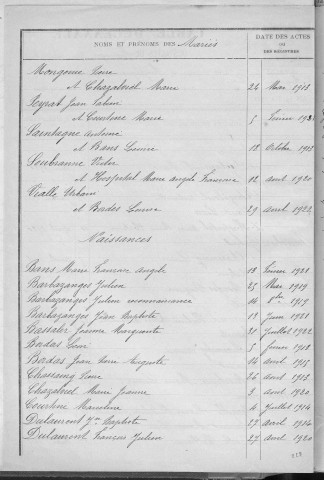 NOMS ET PRÉNOMS DES Mariés
DATE DES ACTES
OU
DES REGISTRES
Mongenne Pierre
et Chazalviel Marie 24 Mai 1913
Peyrat Jean
et Courtine Marie 5 février
Saintagne Antoine
et Bans Louise 18 Octobre
Soubranne Victor
et Hospital Marie Angèle 12 avril 1920
Vialle Urbain
et Bordes Louise 29 avril 1922
Naissances
Bans Marie Angèle 13 février 1921
Barbazanges Julien 25 Mai 1919
Barbazanges Julien reconnaissance 16 1919
Barbazanges Jean Baptiste 1921
Bassaler Jeanne Marguerite 31 Juillet 1922
Bordas 5 1918
Bordas Jean Auguste 16 avril
Chassaing Pierre 26 avril 1913
Chazalviel Marie Jeanne 3 avril 1920
Courtine Marcelline 4 Juillet 1914
Dulaurent Jn Baptiste 17 avril 1914
Dulaurent François Julien 27 avril 1920